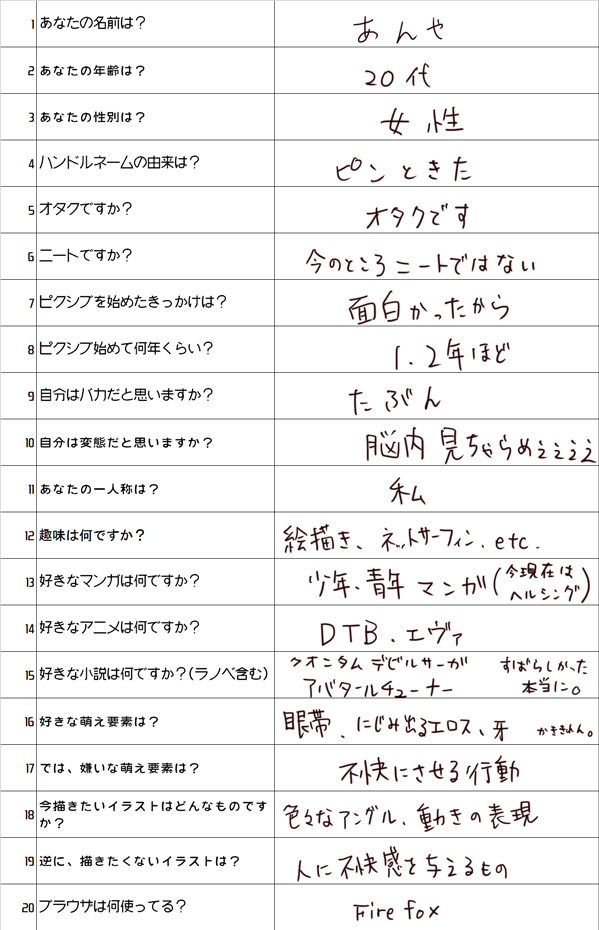 1 あなたの名前は? あんや
2 あなたの年齢は? 20代
3 あなたの性別は? 女性
4 ハンドルネームの由来は? ピンときた
5 オタクですか? オタクです
6 ニートですか? 今のところニートではない
7 ピクシブを始めたきっかけは? 面白かったから
8 ピクシブ始めて何年くらい? 1、2年ほど
9 自分はバカだと思いますか? たぶん
10 自分は変態だと思いますか? 脳内見ちゃらめぇぇぇぇ
11 あなたの一人称は? 私
12 趣味は何ですか? 絵描き、ネットサーフィン、etc.
13 好きなマンガは何ですか? 少年、青年マンガ(今現在は
ヘルシング)
14 好きなアニメは何ですか? DTB、エヴァ
15 好きな小説は何ですか?(ラノベ含む) クオンタムデビルサーガ すばらしかった
アバタールチューナー 本当に。
16 好きな萌え要素は? 眼帯、にじみ出るエロス、牙
17 では、嫌いな萌え要素は? 不快にさせる行動
18 今描きたいイラストはどんなものです
か? 色々なアングル、動きの表現
19 逆に、描きたくないイラストは? 人に不快感を与えるもの
20 ブラウザは何使ってる? Fire fox